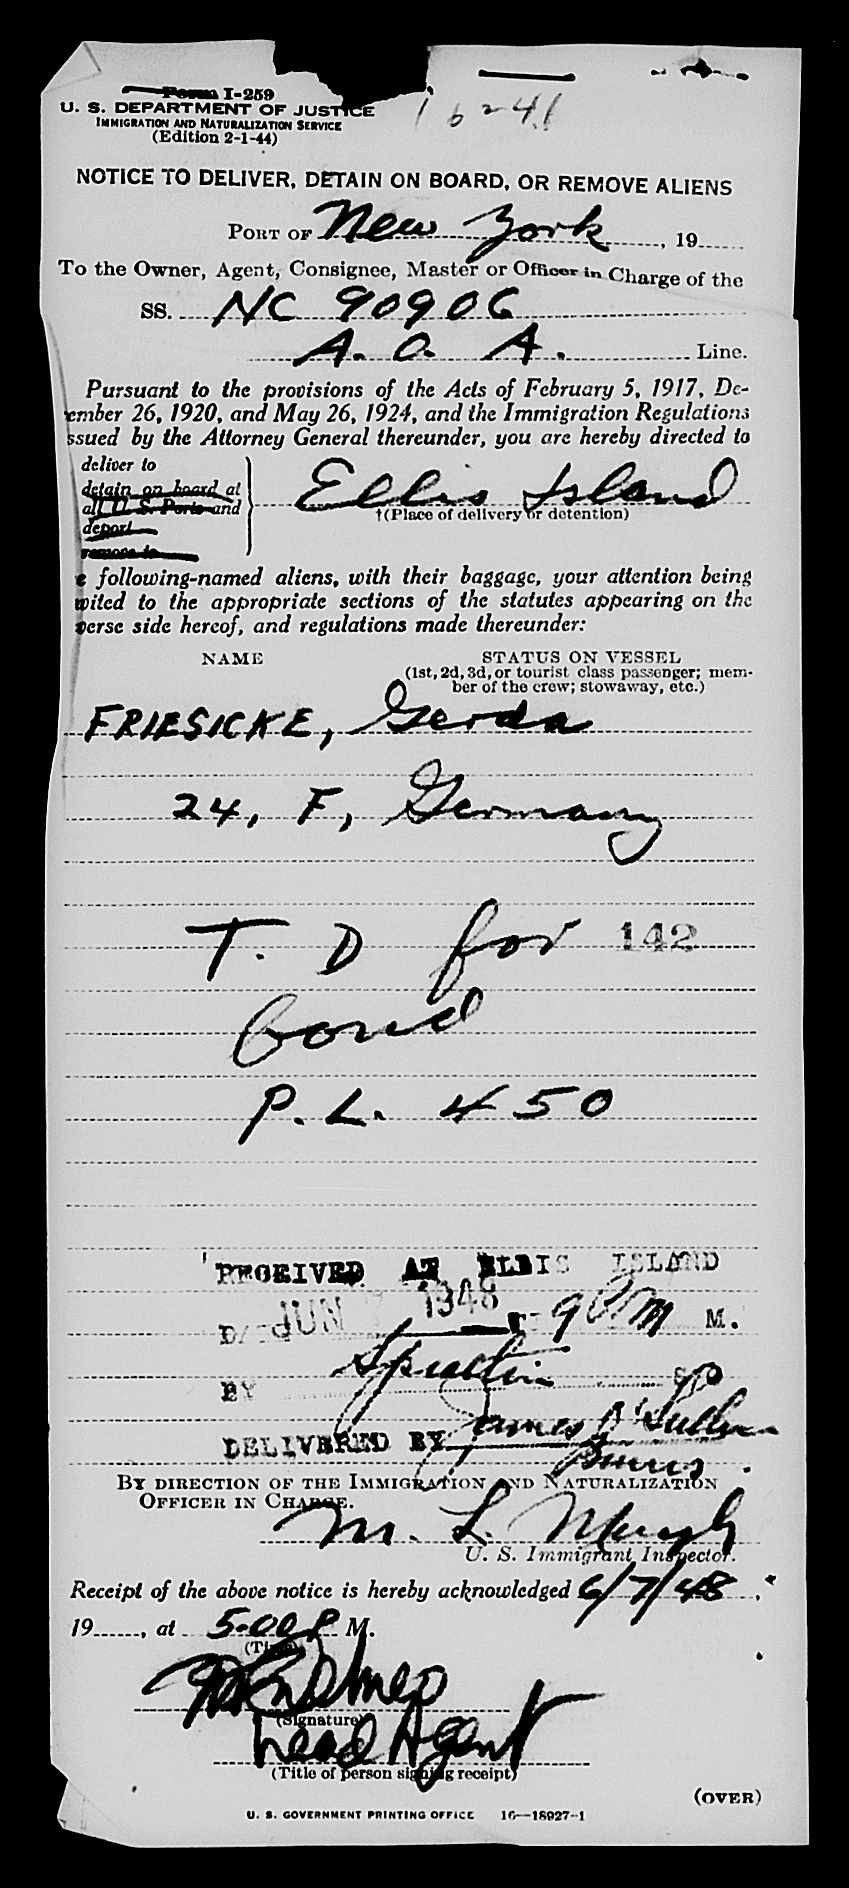 Form I-259
U. S. DEPARTMENT OF JUSTICE
IMMIGRATION AND NATURALIZATION SERVICE
(Edition 2-1-44)
16241
NOTICE TO DELIVER, DETAIN ON BOARD, OR REMOVE ALIENS
PORT OF New York, 19
To the Owner, Agent, Consignee, Master or Officer in Charge of the
SS. NC 90906
A. O. A. Line.
Pursuant to the provisions of the Acts of February 5, 1917, De-
ember 26, 1920, and May 26, 1924, and the Immigration Regulations
ssued by the Attorney General thereunder, you are hereby directed to
deliver to
detain on board at
all U. S. Ports and
deport
remove to
Ellis Island
†(Place of delivery or detention)
e following-named aliens, with their baggage, your attention being
vited to the appropriate sections of the statutes appearing on the
verse side hereof, and regulations made thereunder:
NAME STATUS ON VESSEL
(1st, 2d, 3d, or tourist class passenger; mem-
ber of the crew; stowaway, etc.)
FRIESICKE, Gerda
24, F, Germany
T. D for 142
bond
P. L. 450
RECEIVED AT ELLIS ISLAND
JUN 1948 9 PM M.
BY
DELIVERED BY James O'Sullivan
Burns
BY DIRECTION OF THE IMMIGRATION AND NATURALIZATION
OFFICER IN CHARGE.
M. L. Murphy
U. S. Immigrant Inspector.
Receipt of the above notice is hereby acknowledged 6/7/48,
19, at 5:00 P M.
(Time)
(Signature)
Lead Agent
(Title of person signing receipt)
(OVER)
U. S. GOVERNMENT PRINTING OFFICE 16—18927-1